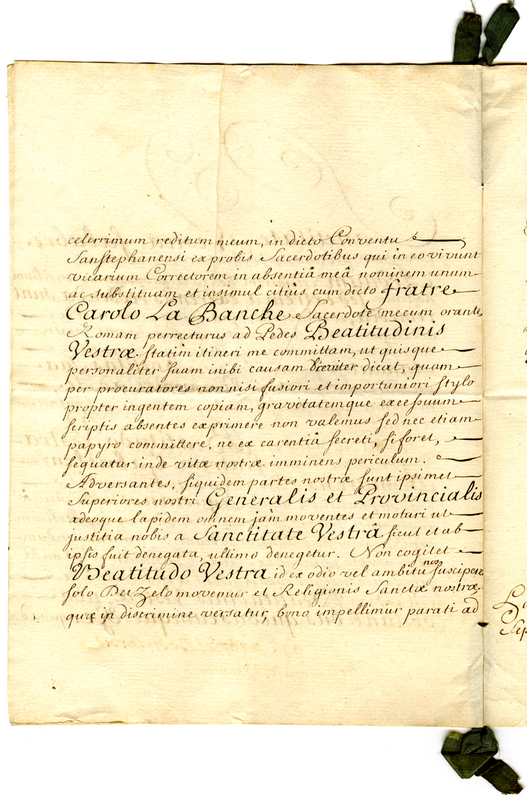 celerrimum reditum meum, in dicto Conventu
Sanstephanensi ex probis Sacerdotibus qui in eo vivunt
vicarium Correctorem in absentiâ meâ nominem unum-
ac substituam et insimul citiùs cum dicto fratre
Carolo La Banche Sacerdote mecum orante
Romam perrecturus ad Pedes Beatitudinis
Vestræ statim itineri me committam, ut quisque
personaliter suam inibi causam breviter dicat, quam
per procuratores non nisi fusiori et importuniori stylo
propter ingentem copiam, gravitatemque excessuum
scriptis absentes exprimere non valemus sed nec etiam
papyro committere, ne ex carentiâ secreti, si foret,
sequatur inde vitæ nostræ imminens periculum.
Adversantes, siquidem partes nostræ sunt ipsimet
Superiores nostri Generalis et Provincialis
adeoque lapidem omnem jàm moventes et moturi ut
justitia nobis a Sanctitate Vestrâ sicut et ab
ipsis fuit denegata, ultimo denegetur. Non cogitet
Beatitudo Vestra id ex odio vel ambitu nos suscipere
solo Dei Zelo movemur et Religionis Sanctæ nostræ
quæ in discrimine versatur, bono impellimur parati ad